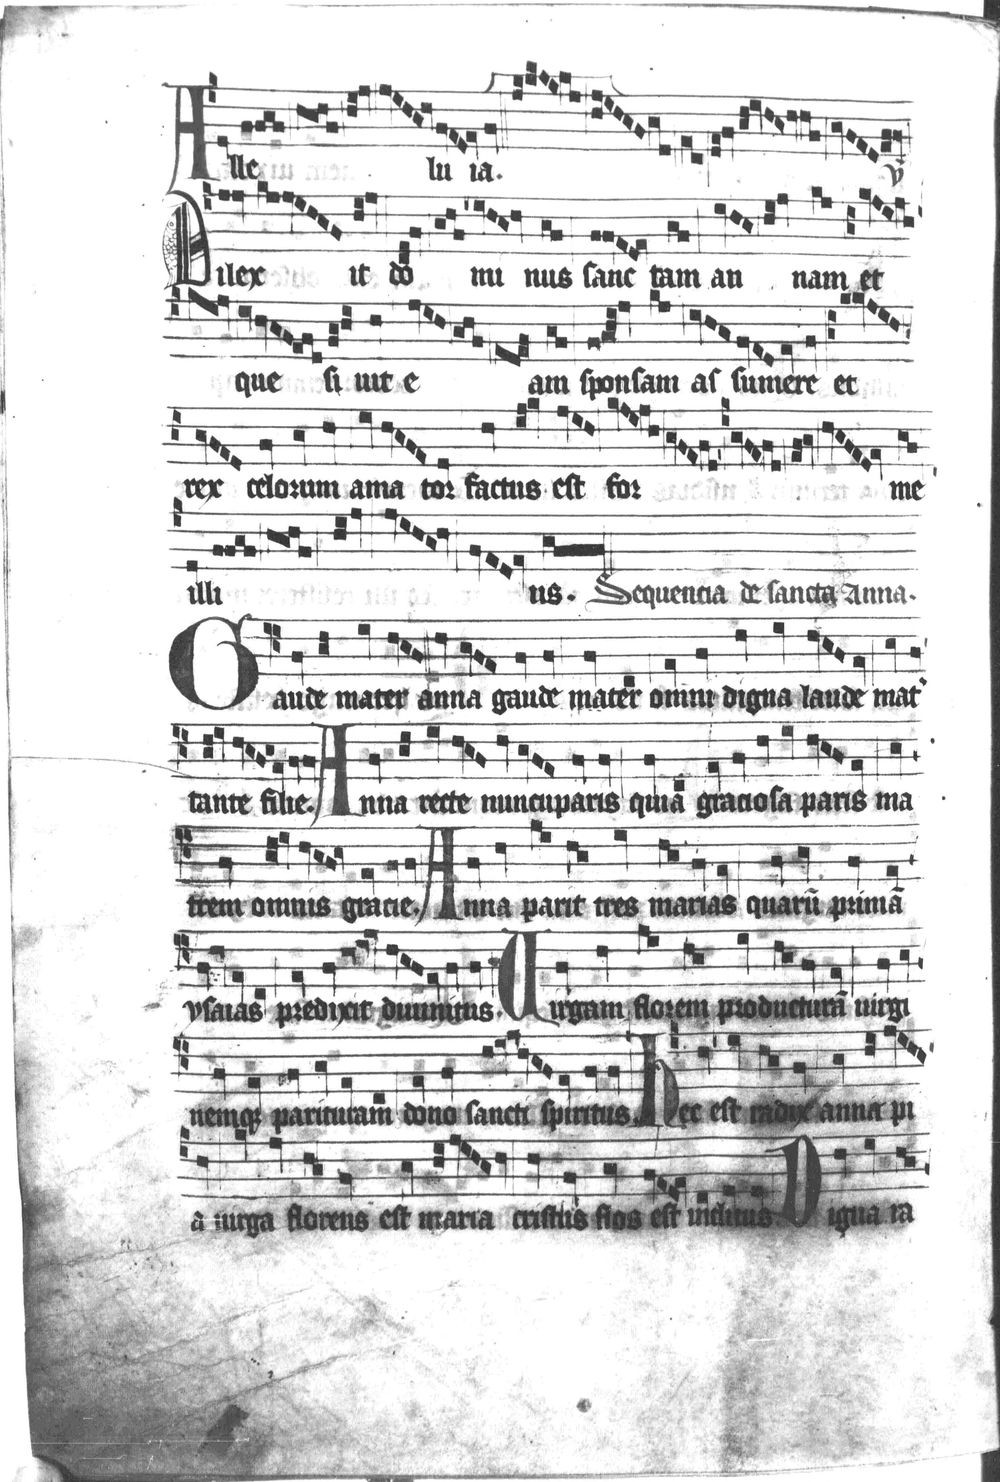 Alle lu ia. v̄
Dilex it do mi nus sanc tam an nam et
que si uit e am sponsam as sumere et
rex celorum ama tor factus est for me
illi us. Sequencia de sancta Anna.
Gaude mater anna gaude mater omni digna laude mat̉
tante filie. Anna recte nuncuparis quia graciosa paris ma
trem omnis gracie. Anna parit tres marias quarū primā
ysaias predixit diuinitus. Uirgam florem producturā uirgi
nemqꝫ parituram dono sancti spiritus. Hec est radix anna pi
a uirga florens est maria cristus flos est inclitus Digna ra